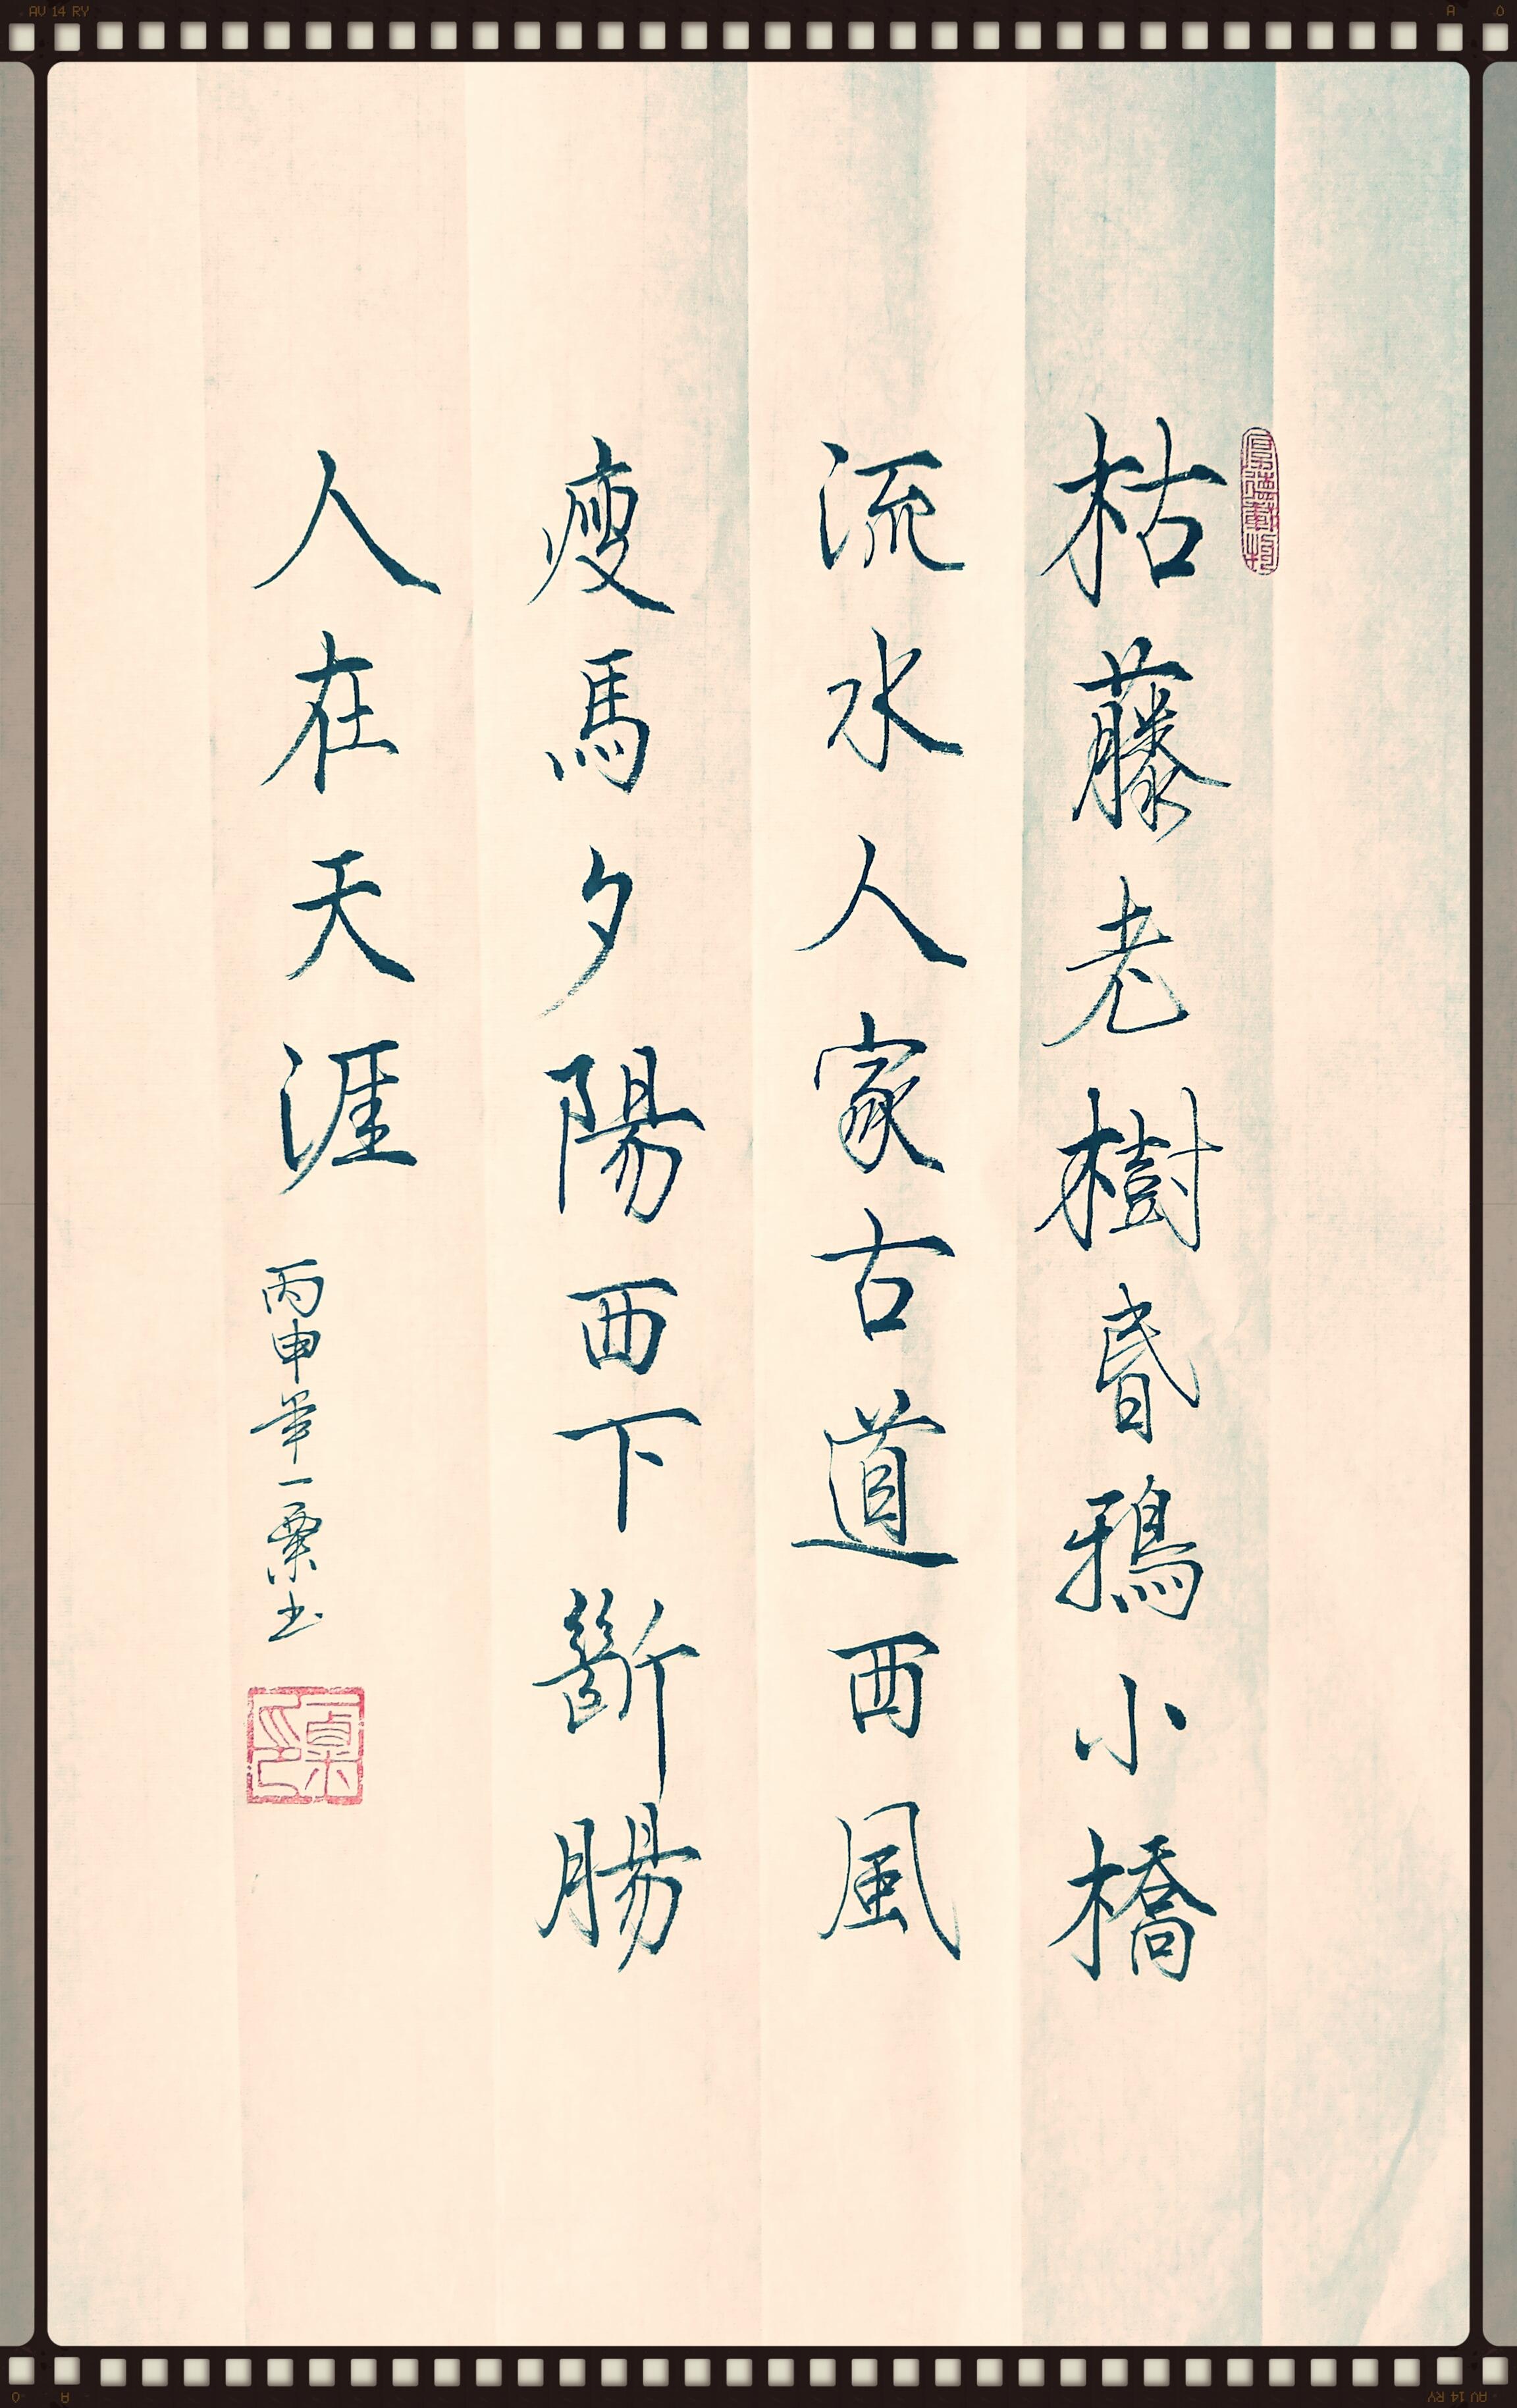 枯藤老樹昏鴉小橋
流水人家古道西風
瘦馬夕陽西下斷腸
人在天涯
丙申年一粟书
厚德載物
一粟印
AV 14 RY